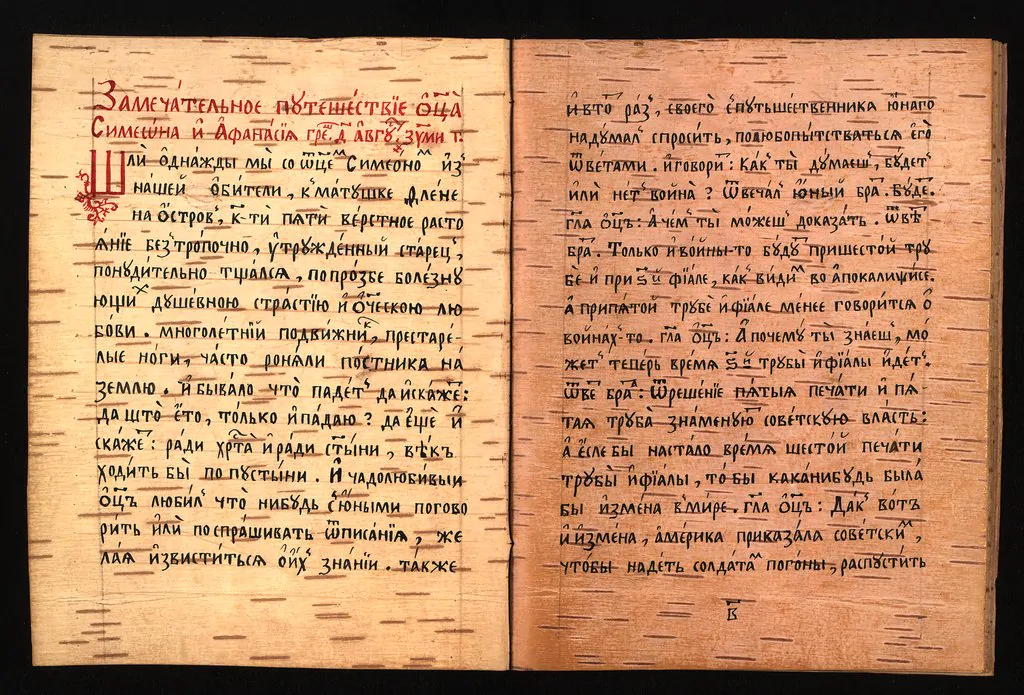 Замеча́тельное путеше́ствїе ѻ҆ц҃а̀
Симеѡ́на и҆ А҆фана́сїѧ
Шли̇̀ ѻ҆днажды мы̀ со ѻ҆тце́мъ Симео́номъ и҆з̾
на́шей ѻ҆би́тели, к̾ ма́тушке Е҆ле́не
на О́стров̾, к̾-ти пѧти ве́рстное расто
ѧ́нїе без̾тро́почно, ᲂу҆тружде́нный ста́рец̾,
пону́дительно тща́лсѧ, по про́збе болѐзну
ющих̾ душе́вною стра́стїю и҆ ѻ҆́ч҃ескою лю
бо́ви. многоле́тнїй подви́жник̾, престаре́-
лые но́ги, ча́сто роня́ли по́стника на́
зе́млю. и҆ быва́ло что паде́т̾ да и҆ска́же:
да што́ е҆́то, то́лько и҆ па́даю? да е҆щѐ и҆
ска́же: ра́ди хрⷭ҇та̀ и҆ ра́ди ст҃ы́ни, вѣ́къ
ходи́ть бы по пусты́ни. И҆ чадолюби́выи
ѻ҆ц҃ъ люби́л̾ что нибу́дь с̾ ю҆́ными погово
ри́ть и҆лѝ поспра́шивать ѿ писа́нїѧ, же
ла́ѧ и҆зви́ститьсѧ ѻ҆ и҆́х зна́нїи. та́кже
и҆ в то̀ ра́з̾, своего̀ спу́тьшественника ю҆́наго
наду́мал̾ спроси́ть, полюбопы́тствоватьсѧ е҆гѡ̀
ѿве́тами. и҆ говори́т: ка́к̾ ты̀ ду́маеш̾, бу́дет̾
и҆лѝ не́т̾ война̀? ѿвеча́л̾ ю҆́ный бра́т. бу́де.
гл҃а ѻ҆ц҃ъ: А҆ че́м̾ ты̀ мо́жеш̾ доказа́ть. ѿвѣ́
бра́. То́лько и҆ во́йны-то бу́ду при шесто́й тру
бѐ и҆ при ѕ҃ й фїа́ле, ка́к̾ ви́дим во А҆пока́липсисе.
а҆ при пѧ́той тру́бе и҆ фїа́ле ме́нее говори́тсѧ ѻ҆
во́йнах-то. гл҃а ѻ҆ц҃ъ: А҆ почему̀ ты̀ зна́еш̾, мо́
жет̾ тепе́рь вре́мѧ ѕ҃ й тру́бы и҆ фїа́лы и҆де́т̾.
ѿве́ бра́: ѿреше́нїе пѧ́тыѧ печа́ти и҆ пѧ́-
таѧ труба̀ знамену́ю сове́тскую вла́сть:
а҆ е҆́сле бы наста́ло вре́мѧ шесто́й печа́ти
трубы̀ и҆ фїа́лы, то́ бы кака́нибудь была̀
бы и҆зме́на в̾ ми́ре. гл҃а ѻ҆ц҃ъ: Да́к̾ во́тъ
и҆ и҆зме́на, а҆ме́рика приказа́ла сове́тским̾,
что́бы наде́ть солда́там пого́ны, распусти́ть
в҃